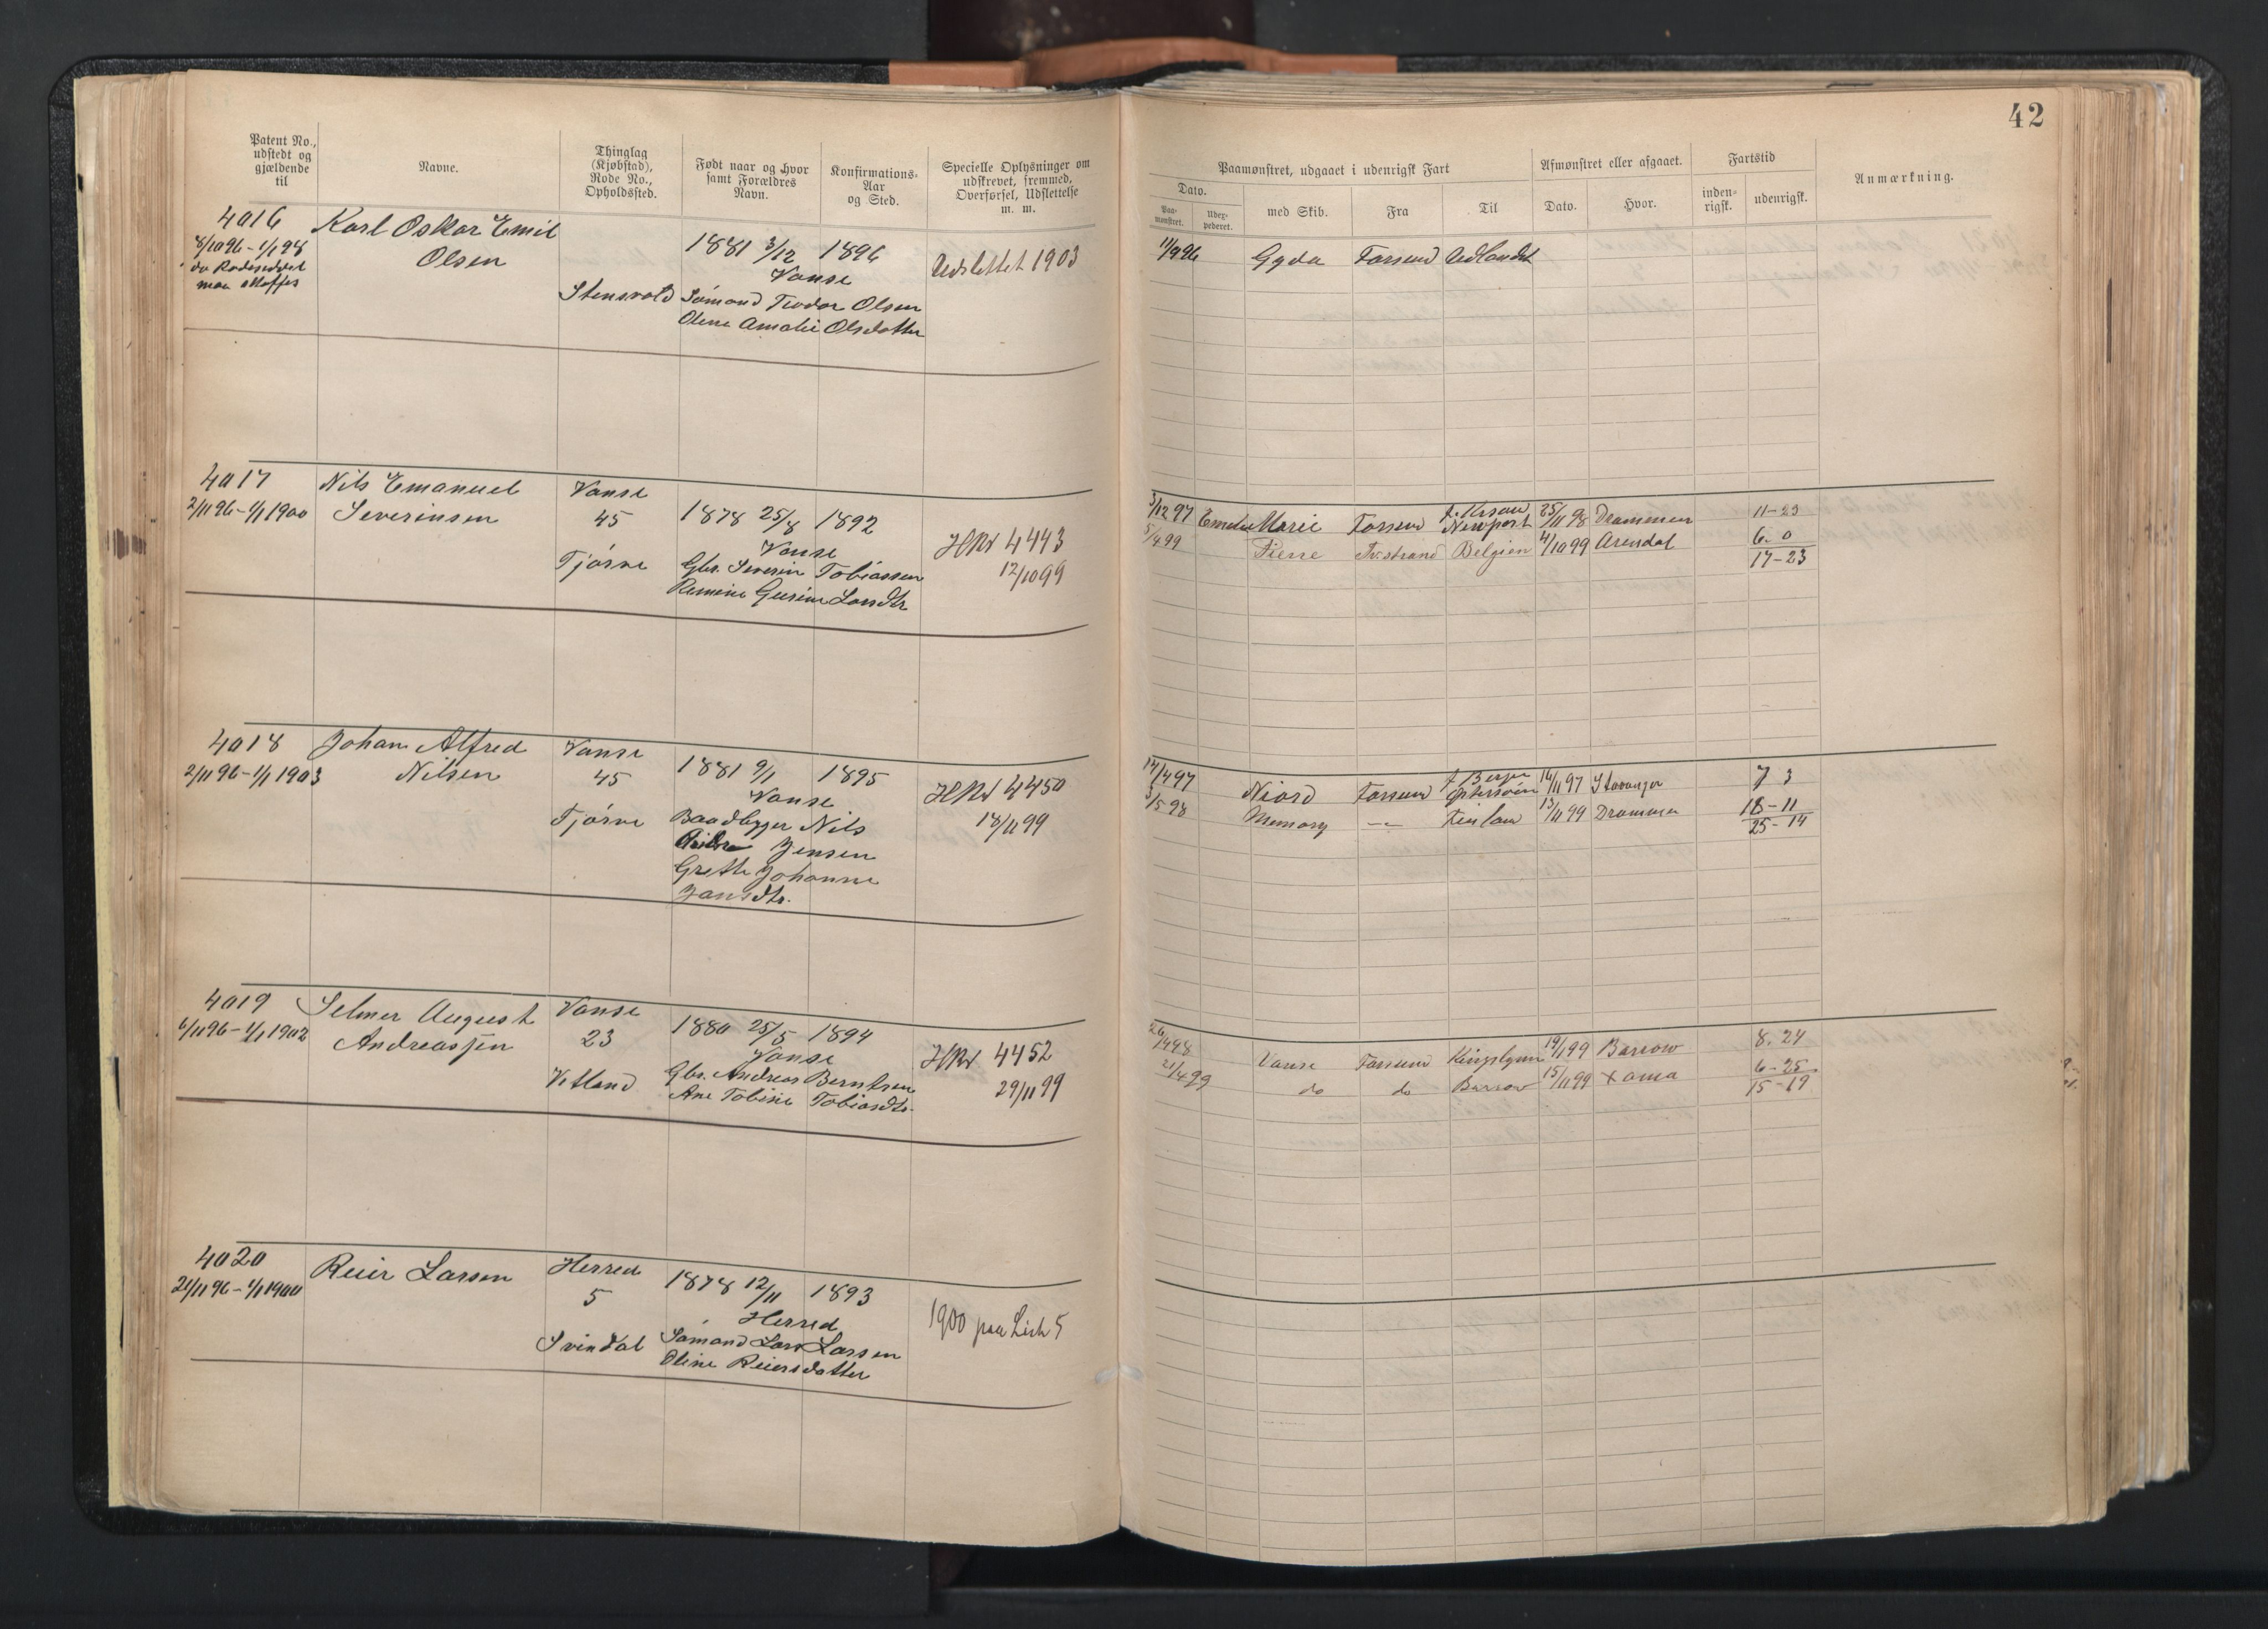 42
Patent No., udstedt og gjældende til
Navne.
Thinglag (Kjøbstad), Rode No., Opholdssted.
Født naar og hvor samt Forældres Navn.
Konfirmations-Aar og Sted.
Specielle Oplysninger om udskrevet, fremmed, Overførsel, Udslettelse m. m.
Paamønstret, udgaaet i udenrigsk Fart
Dato.
Paa-mønstret.
Udex-pederet.
med Skib.
Fra
Til
Afmønstret eller afgaaet.
Dato.
Hvor.
Fartstid
inden-rigsk.
udenrigsk.
Anmærkning.
4016
8/10 96 - 1/1 98
Karl Oskar Emil
Olsen
Stensvold
1881 3/12 1896
Vanse
Sømand Teodor Olsen
Olene Amalie Olsdatter
Udslettet 1903
11/9 96 Gyda Farsund Udlandet
4017
2/11 96 - 1/1 1900
Nils Emanuel
Severinsen
Vanse
45
Tjørve
1878 25/8 1892
Vanse
Gbr. Severin Tobiassen
Gurine Larsdtr
HRv 4443
12/10 99
3/12 97 Emelie Marie Farsund Newport 25/11 98 Drammen 11-23
5/4 99 Fierre Tv.strand Belgien 4/10 99 Arendal 6-0
17-23
4018
2/11 96 - 1/1 1903
Johan Alfred
Nilsen
Vanse
45
Tjørve
1881 9/1 1895
Vanse
Baadbygger Nils
Jensen
Grethe Johanne
Jansdtr.
HRv 4450
18/11 99
14/4 97 Niord Farsund 16/11 97 Stavanger 7 3
3/5 98 Memory -"- 13/11 99 Drammen 18-11
25-14
4019
6/11 96 - 1/1 1902
Selmer August
Andreassen
Vanse
23
Vetland
1880 25/5 1894
Vanse
Gbr. Andreas Berntsen
Ane Tobine Tobiasdtr.
HRv 4452
29/11 99
26/4 98 Vanse Farsund Kingslynn 19/1 99 Barrow 8.24
21/4 99 do do Barrow 15/11 99 6-25
15-19
4020
21/11 96 - 1/1 1900
Reier Larsen
Herred
5
Svindal
1878 12/11 1893
Herred
Sømand Lars Larsen
Oline Reiersdatter
1900 paa List 5